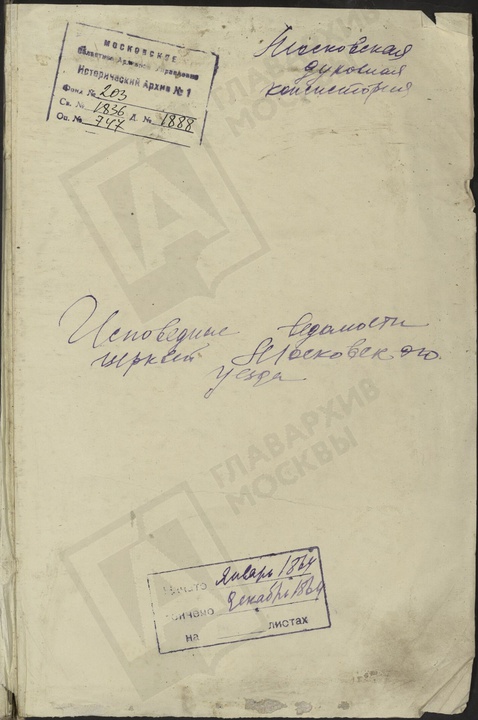 МОСКОВСКОЕ
Исторический Архив № 1
Фонд № 203
Св. № 1836
Оп. № 747 Д. № 1888
Московская
духовная
консистория
ГЛАВАРХИВ
МОСКВЫ
Исповедные ведомости
церквей Московского
уезда
ГЛАВАРХИВ
МОСКВЫ
Начато январь 1864
Окончено декабрь 1864
на листах